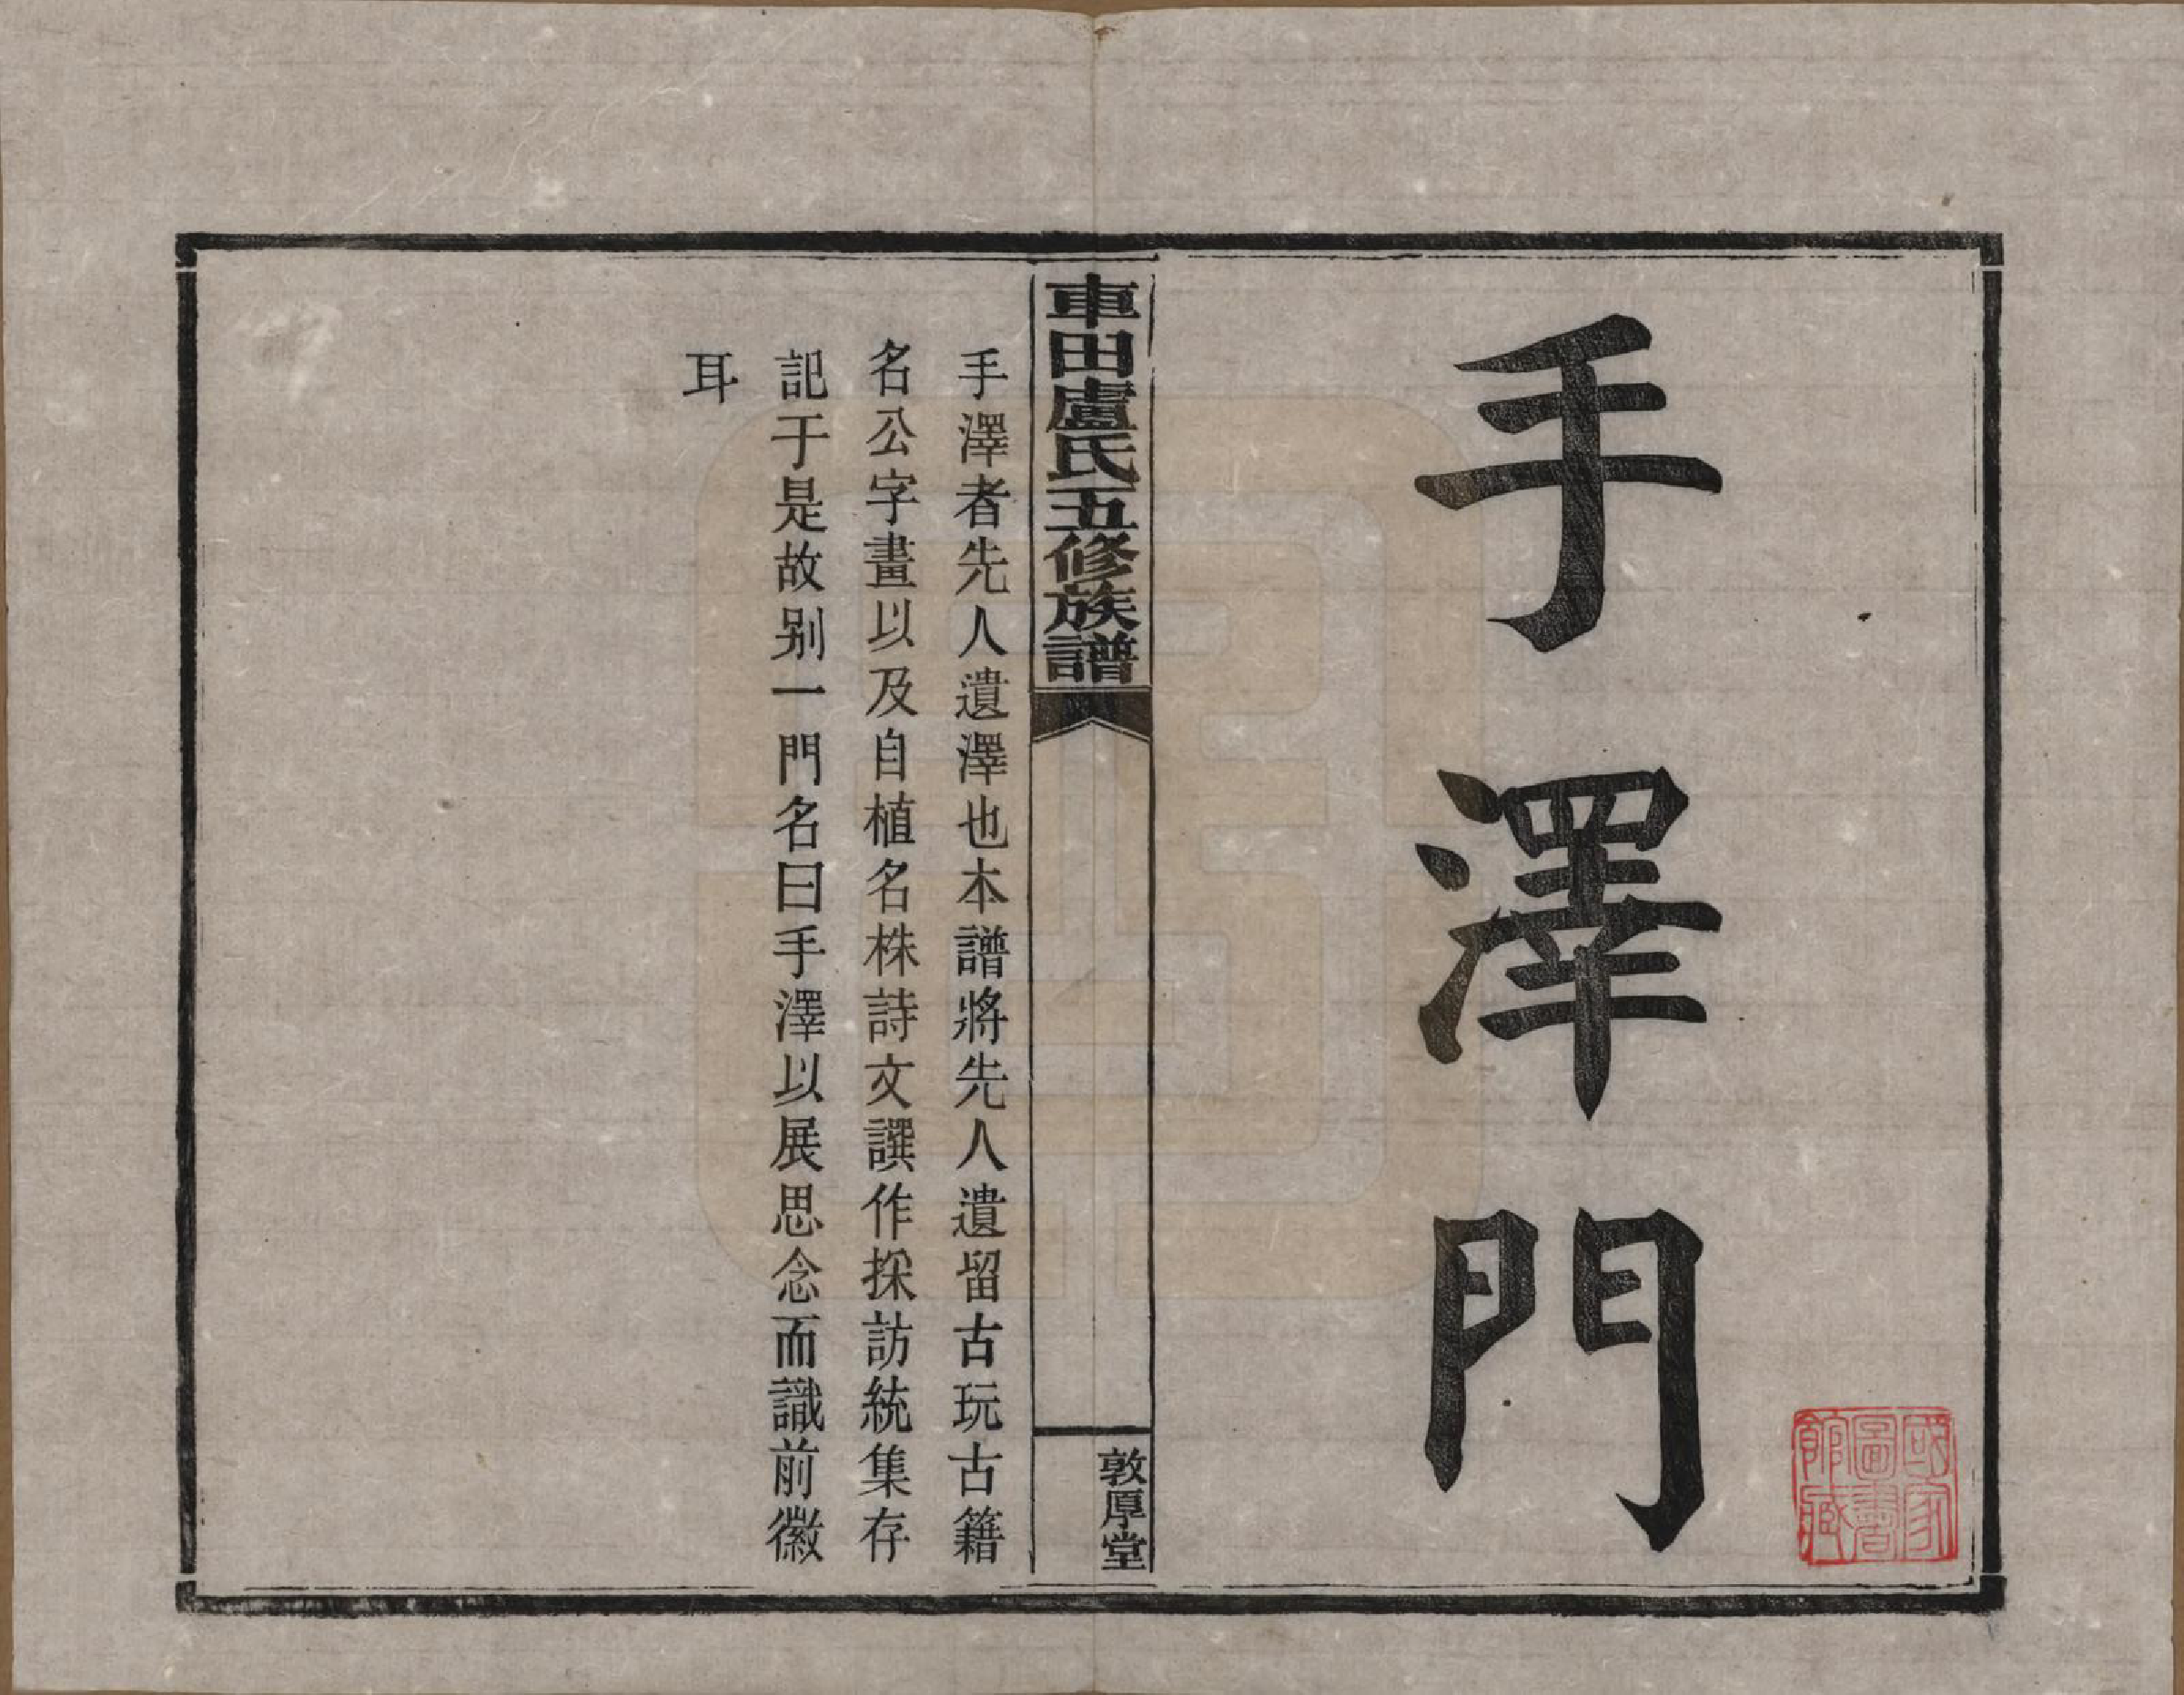 手澤門
國家圖書館藏
車田盧氏五修族譜
敦厚堂
手澤者先人遺澤也本譜將先人遺留古玩古籍
名公字畫以及自植名株詩文譔作採訪統集存
記于是故别一門名曰手澤以展思念而識前徽
耳